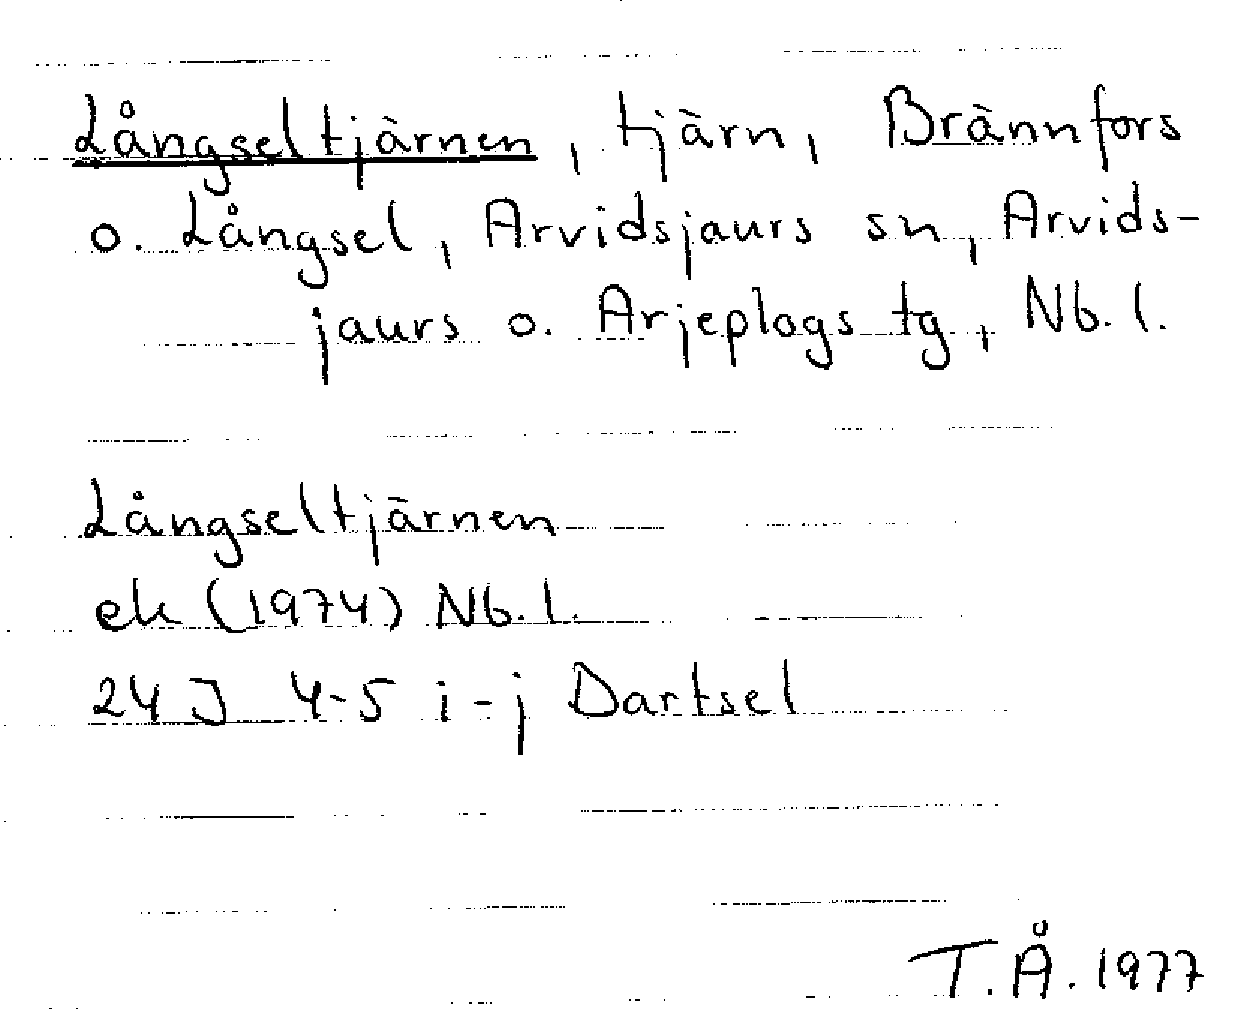 Långseltjärnen, tjärn, Brännfors
o. Långsel, Arvidsjaurs sn, Arvids-
jaurs o. Arjeplogs tg, Nb. l.
Långseltjärnen
ek (1974) Nb. l.
24 J 4-5 i-j Dartsel
T.Å. 1977